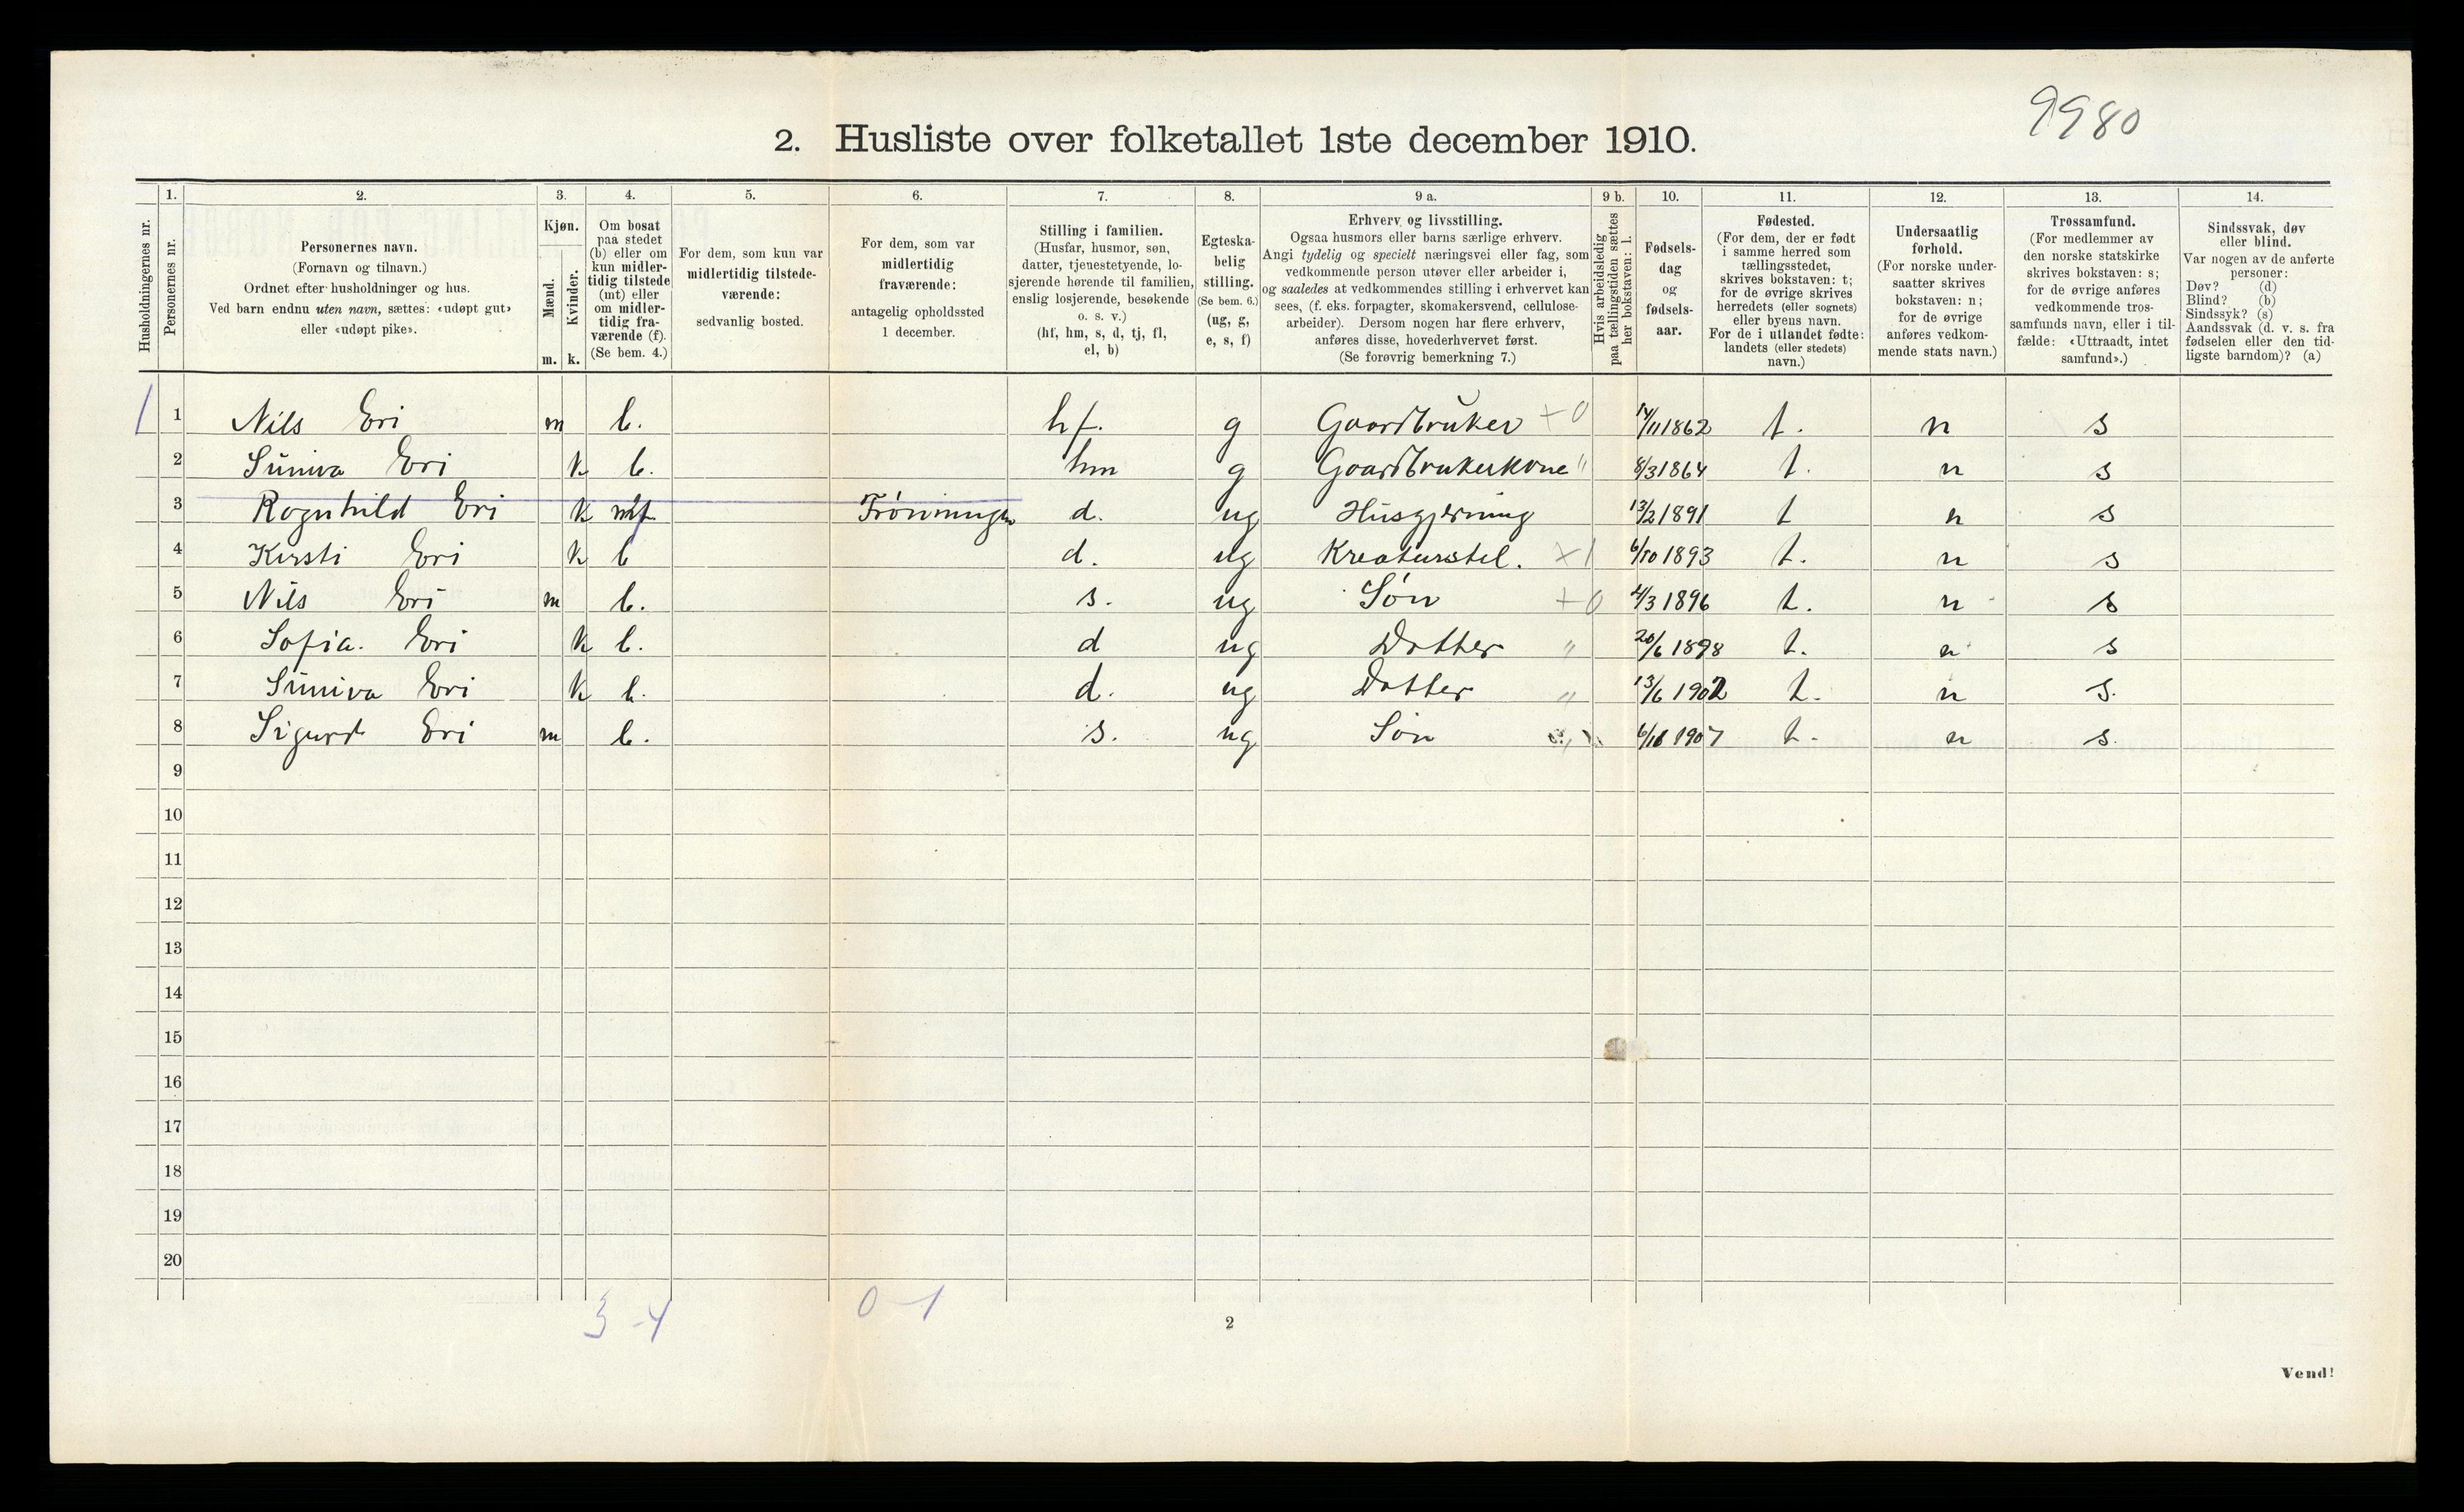 9980
2. Husliste over folketallet 1ste december 1910.
Husholdningernes nr.
1.
Personernes nr.
2.
Personernes navn.
(Fornavn og tilnavn.)
Ordnet efter husholdninger og hus.
Ved barn endnu uten navn, sættes: «udøpt gut»
eller «udøpt pike».
3.
Kjøn.
Mænd.
Kvinder.
m. k.
4.
Om bosat
paa stedet
(b) eller om
kun midler-
tidig tilstede
(mt) eller
om midler-
tidig fra-
værende (f).
(Se bem. 4.)
5.
For dem, som kun var
midlertidig tilstede-
værende:
sedvanlig bosted.
6.
For dem, som var
midlertidig
fraværende:
antagelig opholdssted
1 december.
7.
Stilling i familien.
(Husfar, husmor, søn,
datter, tjenestetyende, lo-
sjerende hørende til familien,
enslig losjerende, besøkende
o. s. v.)
(hf, hm, s, d, tj, fl,
el, b)
8.
Egteska-
belig
stilling.
(Se bem. 6.)
(ug, g,
e, s, f)
9 a.
Erhverv og livsstilling.
Ogsaa husmors eller barns særlige erhverv.
Angi tydelig og specielt næringsvei eller fag, som
vedkommende person utøver eller arbeider i,
og saaledes at vedkommendes stilling i erhvervet kan
sees, (f. eks. forpagter, skomakersvend, cellulose-
arbeider). Dersom nogen har flere erhverv,
anføres disse, hovederhvervet først.
(Se forøvrig bemerkning 7.)
9 b.
Hvis arbeidsledig
paa tællingstiden sættes
her bokstaven: l.
10.
Fødsels-
dag
og
fødsels-
aar.
11.
Fødested.
(For dem, der er født
i samme herred som
tællingsstedet,
skrives bokstaven: t;
for de øvrige skrives
herredets (eller sognets)
eller byens navn.
For de i utlandet fødte:
landets (eller stedets)
navn.)
12.
Undersaatlig
forhold.
(For norske under-
saatter skrives
bokstaven: n;
for de øvrige
anføres vedkom-
mende stats navn.)
13.
Trossamfund.
(For medlemmer av
den norske statskirke
skrives bokstaven: s;
for de øvrige anføres
vedkommende tros-
samfunds navn, eller i til-
fælde: «Uttraadt, intet
samfund».)
14.
Sindssvak, døv
eller blind.
Var nogen av de anførte
personer:
Døv? (d)
Blind? (b)
Sindssyk? (s)
Aandssvak (d. v. s. fra
fødselen eller den tid-
ligste barndom)? (a)
1 1 Nils Eri m b. hf. g Gaardbruker +0 14/11 1862 t. n s
2 Suniva Eri k b. hm g Gaardbrukerkone " 8/3 1864 t. n s
3 Ragnhild Eri k f Trønningen d. ug Husgjerning 13/2 1891 t n s
4 Kirsti Eri k b d. ug Kreaturstel. ×1 6/10 1893 t. n s
5 Nils Eri m b. s. ug Søn +0 4/3 1896 t. n s
6 Sofia. Eri k b. d ug Datter " 20/6 1898 t. n s
7 Suniva Eri k b. d. ug Datter " 13/6 1902 t. n s.
8 Sigurd Eri m b. s. ug Søn 1907 t. n s.
9
10
11
12
13
14
15
16
17
18
19
20
3-4
0-1
2
Vend!